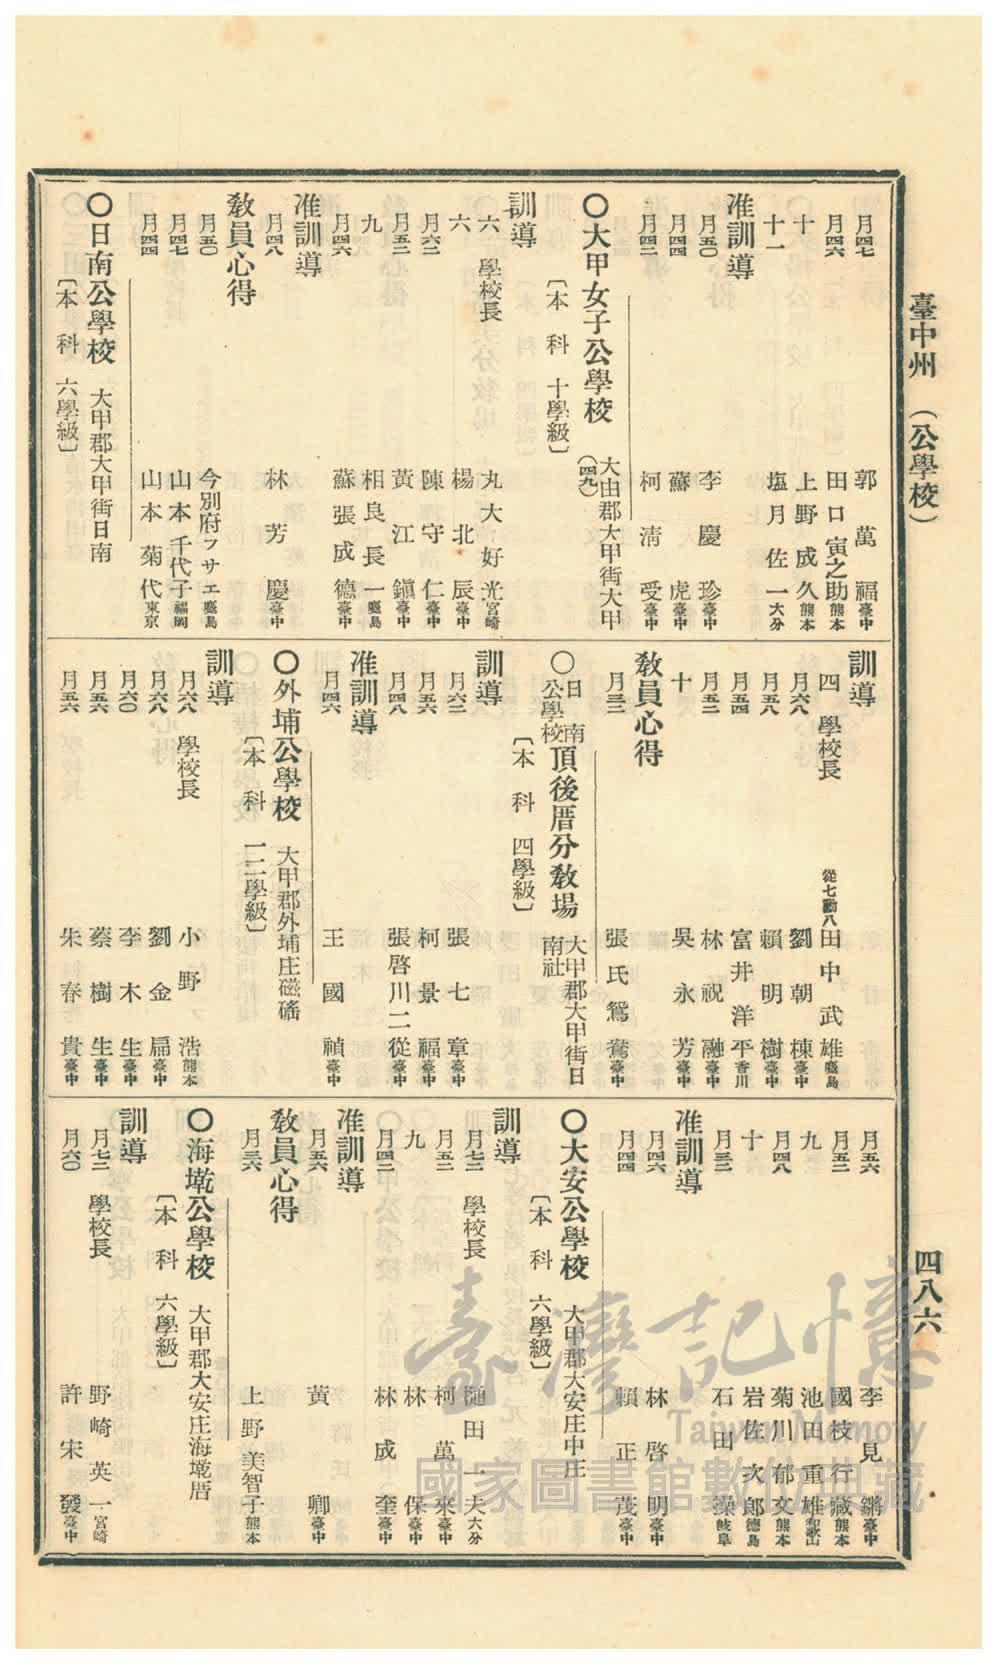 臺中州 (公學校)
四八六
月四七 郭萬福 臺中
月四六 田口寅之助 熊本
十 上野成久 熊本
十一 塩月佐一 大分
准訓導
月五〇 李慶珍 臺中
月四四 蘇虎 臺中
月四二 柯清受 臺中
〇大甲女子公學校 大由郡大甲街大甲(四九)
〔本科 十學級〕
訓導
六 學校長 丸大好光 宮崎
六 楊北辰 臺中
月六二 陳守仁 臺中
月五二 黃江鎭 臺中
九 相良長一 鹿島
月四六 蘇張成德 臺中
准訓導
月四八 林芳慶 臺中
教員心得
月五〇 今別府フサエ 鹿島
月四七 山本千代子 福岡
月四四 山本菊代 東京
〇日南公學校 大甲郡大甲街日南
〔本科 六學級〕
訓導
四 學校長 從七勳八 田中武雄 鹿島
月六八 劉朝棟 臺中
月五八 賴明樹 臺中
月五四 富井洋平 香川
月五二 林祝融 臺中
十 吳永芳 臺中
教員心得
月三二 張氏鴛鴦 臺中
〇日南公學校頂後厝分教場 大甲郡大甲街日南社
〔本科 四學級〕
訓導
月六二 張七章 臺中
月五六 柯景福 臺中
月四八 張啓川二從 臺中
准訓導
月四六 王國禎 臺中
〇外埔公學校 大甲郡外埔庄磁磘
〔本科 一二學級〕
訓導
月六八 學校長 小野浩 熊本
月六八 劉金扁 臺中
月六〇 李木生 臺中
月五六 蔡樹生 臺中
月五六 朱春貴 臺中
月五六 李見鏘 臺中
月五二 國枝行藏 熊本
九 池田重雄 和歌山
月四八 菊川郁文 熊本
十 岩佐次郎 德島
月三二 石田操 岐阜
准訓導
月四六 林啓明 臺中
月四四 賴正茂 臺中
〇大安公學校 大甲郡大安庄中庄
〔本科 六學級〕
訓導
月七三 學校長 樋田一夫 大分
月五二 柯萬來 臺中
九 林保 臺中
月四二 林成奎 臺中
准訓導
月五六 黃卿 臺中
教員心得
月三六 上野美智子 熊本
〇海墘公學校 大甲郡大安庄海墘厝
〔本科 六學級〕
訓導
月七三 學校長 野崎英一 宮崎
月六〇 許宋發 臺中
臺灣記憶
Taiwan Memory
國家圖書館數位典藏